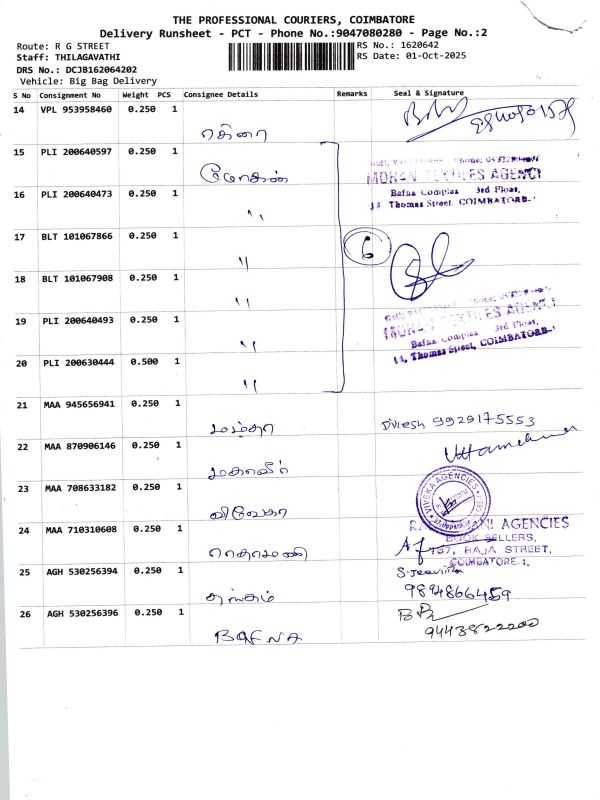 THE PROFESSIONAL COURIERS, COIMBATORE
Delivery Runsheet - PCT - Phone No.:9047080280 - Page No.:2
Route: R G STREET
RS No.: 1620642
Staff: THILAGAVATHI
RS Date: 01-Oct-2025
DRS No.: DCJB162064202
Vehicle: Big Bag Delivery
S No Consignment No Weight PCS Consignee Details Remarks Seal & Signature
14 VPL 953958460 0.250 1
15 PLI 200640597 0.250 1
மோகன்
MOHAN TEXTILES AGENCI
Bafna Complex 3rd Floor,
14 Thomas Street, COIMBATORE-1
16 PLI 200640473 0.250 1
"
17 BLT 101067866 0.250 1
"
6
18 BLT 101067908 0.250 1
"
19 PLI 200640493 0.250 1
"
MOHAN TEXTILES AGENCI
Bafna Complex 3rd Floor,
14, Thomas Street, COIMBATORE-1
20 PLI 200630444 0.500 1
"
21 MAA 945656941 0.250 1
மம்தா
Divesh 9929175553
22 MAA 870906146 0.250 1
மகாவீர்
23 MAA 708633182 0.250 1
விவேகா
VIVEKA AGENCIES
24 MAA 710310608 0.250 1
ராதாமணி
AGENCIES
BOOK SELLERS,
187, RAJA STREET,
COIMBATORE-1.
25 AGH 530256394 0.250 1
தங்கம்
9894866459
26 AGH 530256396 0.250 1
BAFNA
9443822200